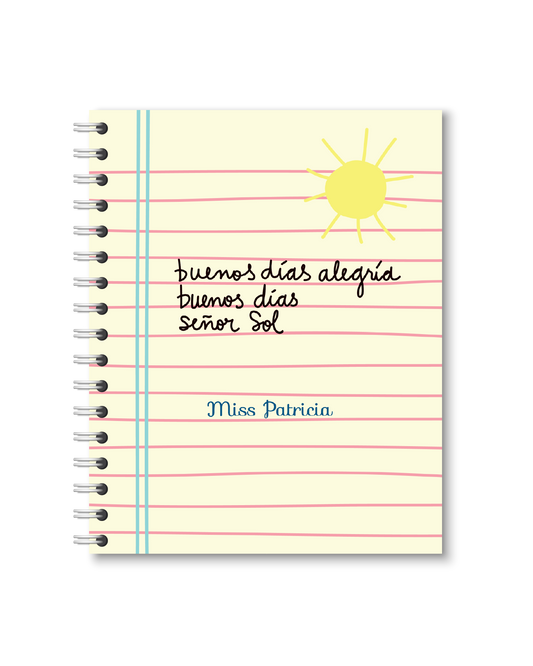 buenos días alegría
buenos días
señor Sol
Miss Patricia